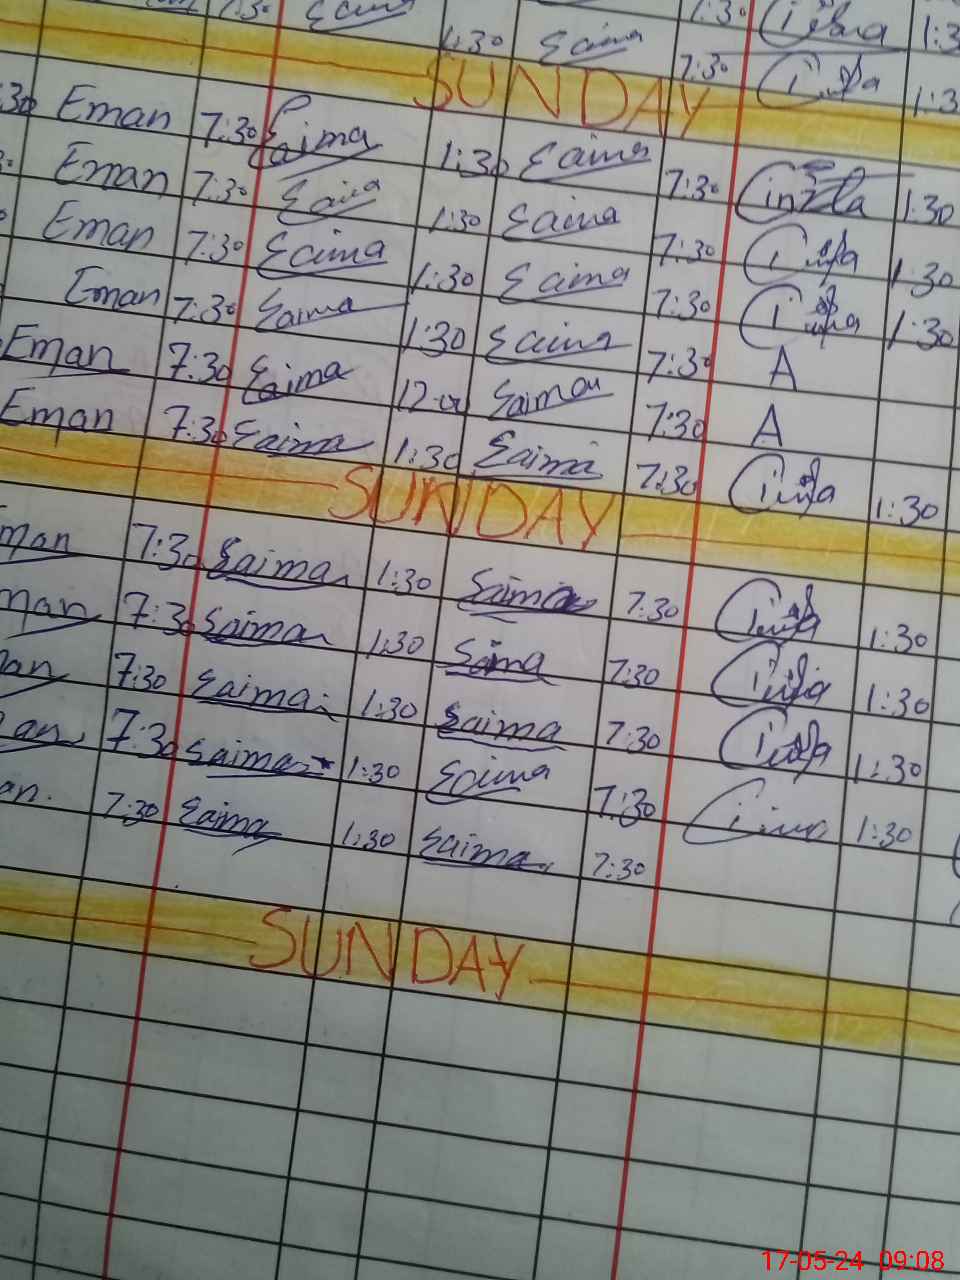 7:30 Saima
1:30 Saima 7:30
SUNDAY
:30 Eman 7:30 Saima 1:30 Saima 7:30 1:30
Eman 7:30 Saima 1:30 Saima 7:30 1:30
Eman 7:30 Saima 1:30 Saima 7:30 1:30
Eman 7:30 Saima 1:30 Saima 7:30 A
Eman 7:30 Saima 12:00 Saima 7:30 A
Eman 7:30 Saima 1:30 Saima 7:30 1:30
SUNDAY
man 7:30 Saima 1:30 Saima 7:30 1:30
man 7:30 Saima 1:30 Saima 7:30 1:30
an 7:30 Saima 1:30 Saima 7:30 1:30
an 7:30 Saima 1:30 Saima 7:30 1:30
an. 7:30 Saima 1:30 Saima 7:30
SUNDAY
17-05-24 09:08